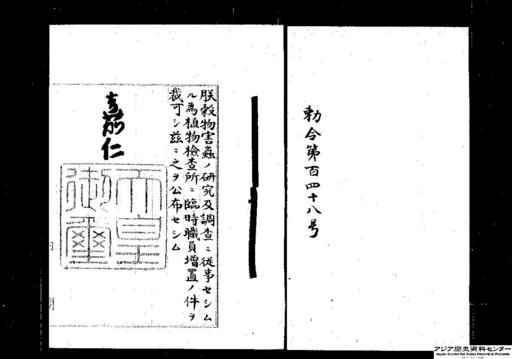 勅令第百四十八号
朕穀物害蟲ノ研究及調査ニ従事セシム
ル為植物檢査所ニ臨時職員増置ノ件ヲ
裁可シ茲ニ之ヲ公布セシム
嘉仁
天皇
御璽
アジア歴史資料センター
Japan Center for Asian Historical Records